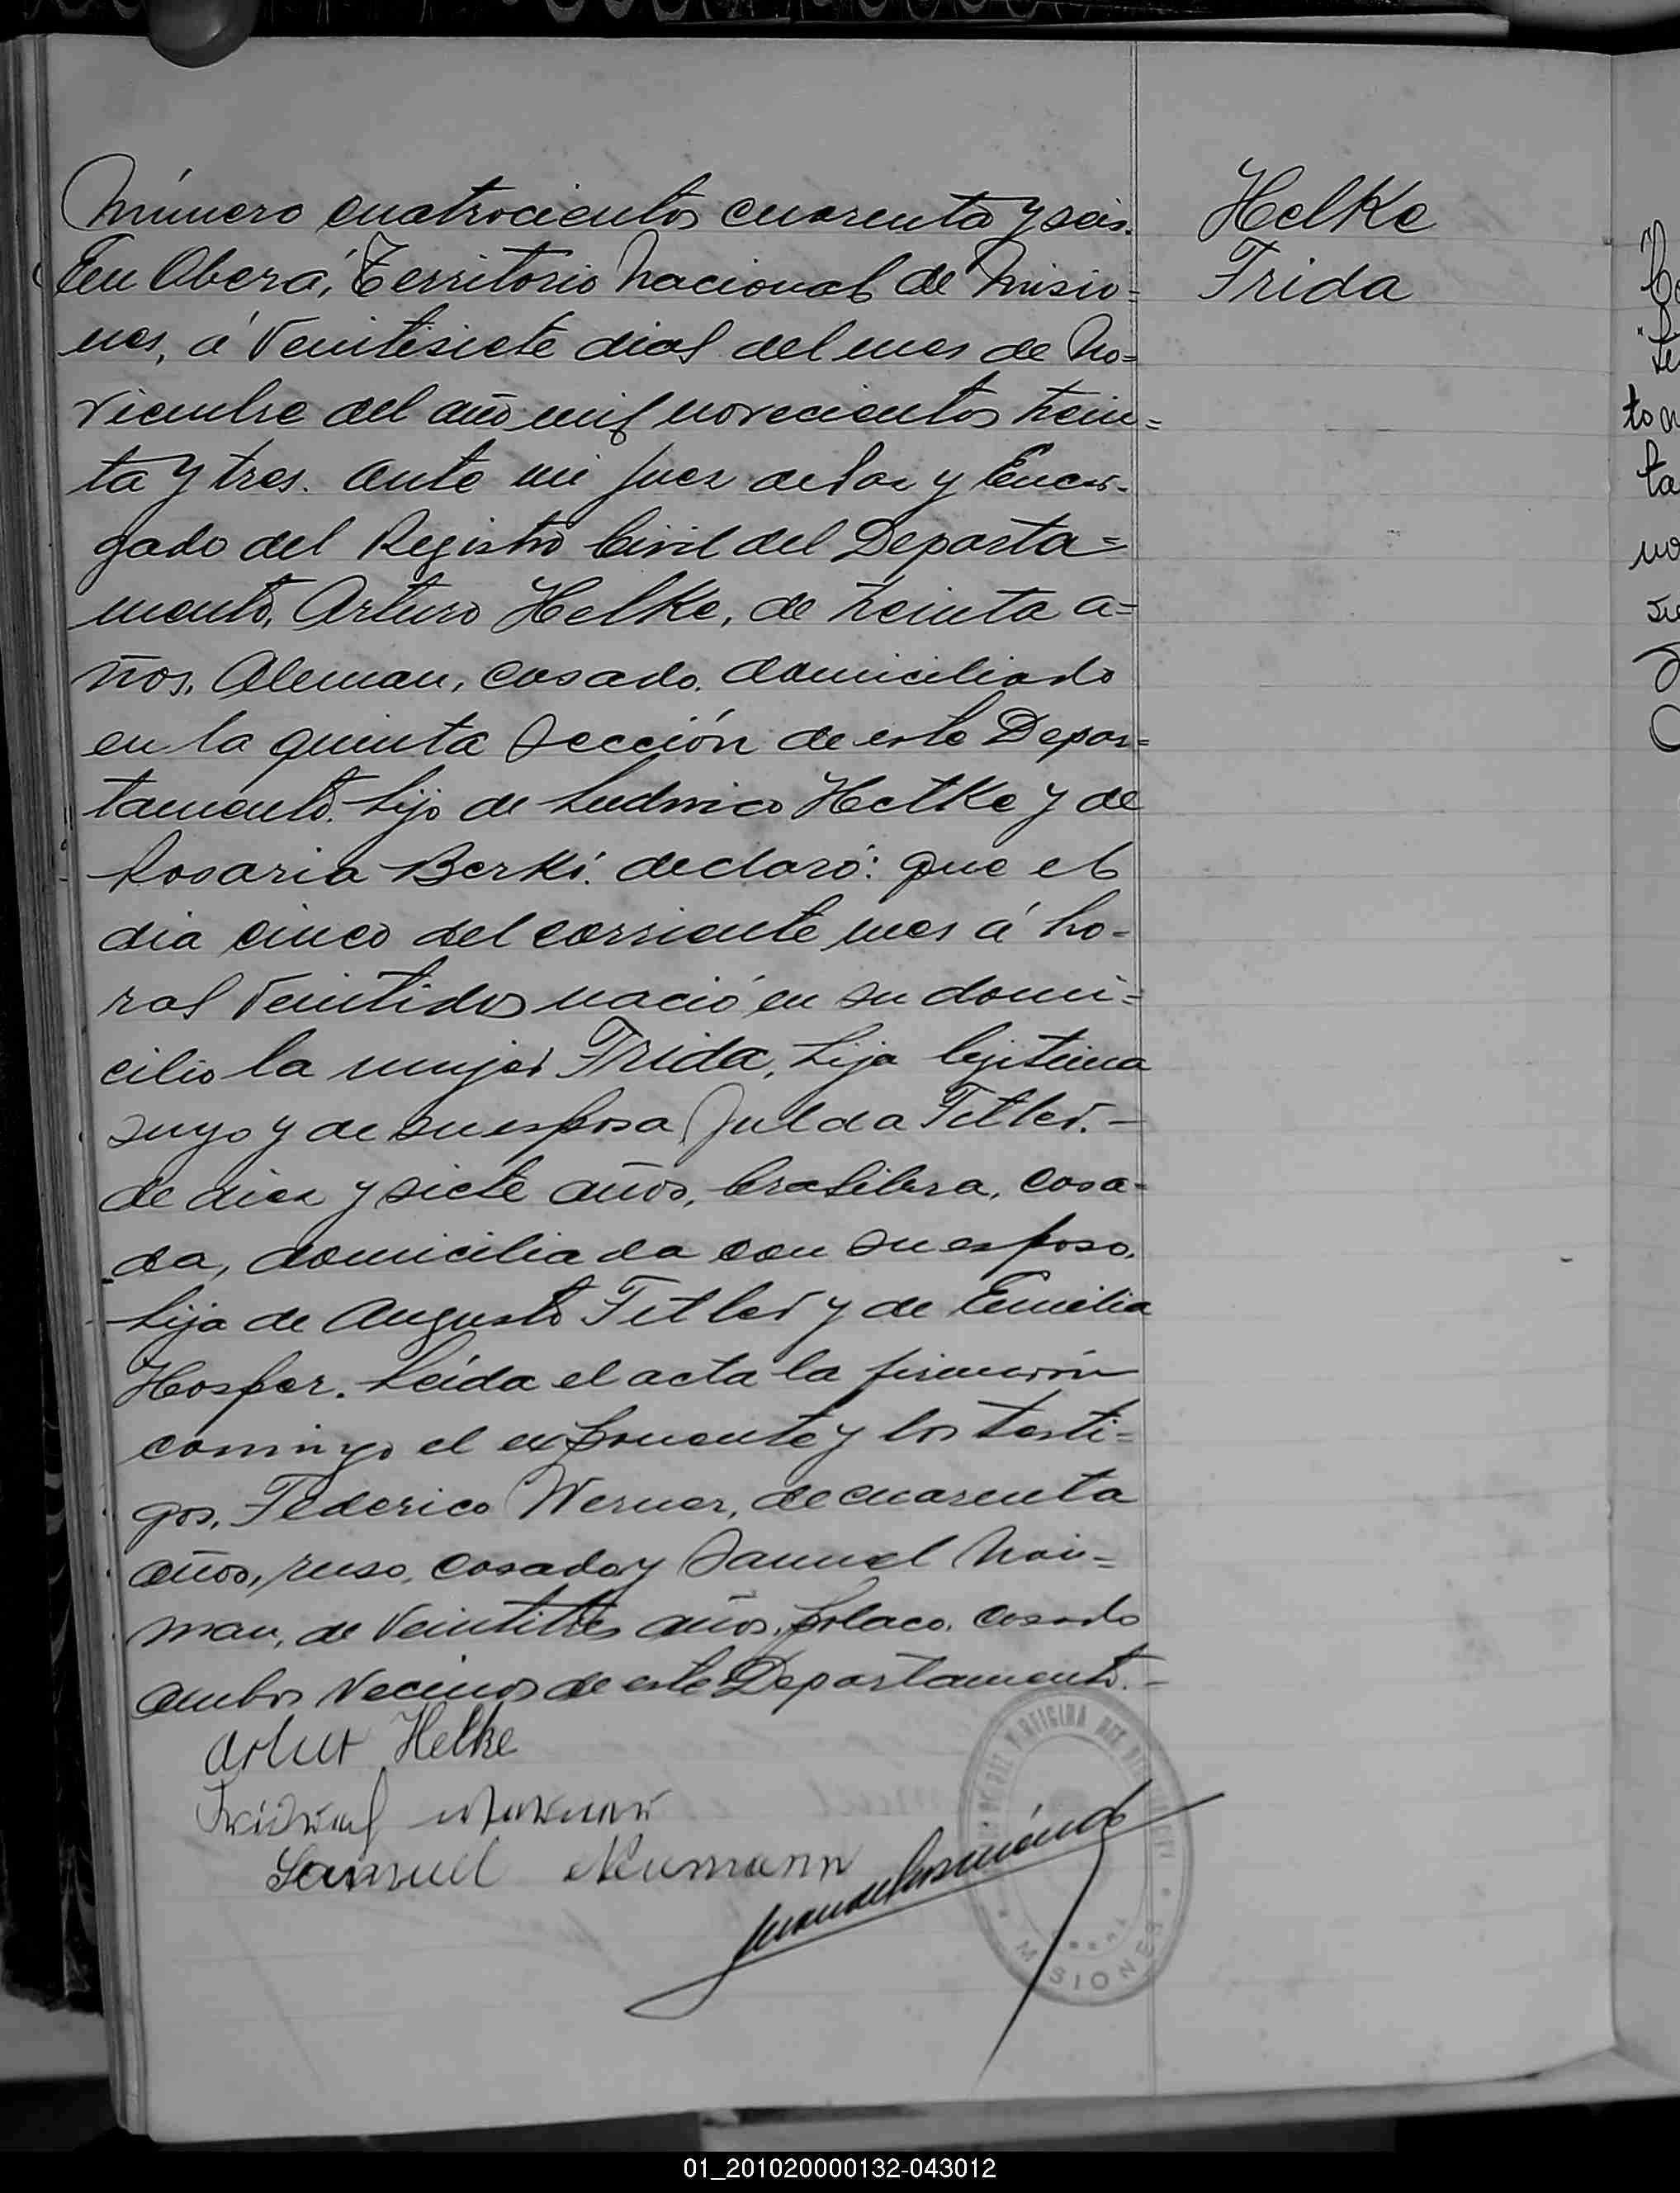 Helke
Frida
Número cuatrocientos cuarenta y seis.
En Oberá, Territorio Nacional de Misio=
nes, á Veintisiete dias del mes de No=
viembre del año mil novecientos trein=
ta y tres. ante mi Juez de Paz y Encar-
gado del Registro Civil del Departa=
mento, Arturo Helke, de treinta a=
ños, Aleman, casado, domiciliado
en la quinta Sección de este Depar=
tamento. hijo de Ludvico Hetke y de
Rosaria Berki. declaró: que el
dia cinco del corriente mes á ho=
ras Veintidos nació en su domi=
cilio la mujer Frida, hija lejitima
suya y de su esposa Julda Titler.-
de diez y siete años, brasilera, casa=
da, domiciliada con su esposo,
hija de Augusto Titler y de Emilia
Hosfer. Leída el acta la firmarón
comingo el exponente y los testi=
gos, Federico Werner, de cuarenta
años, ruso, casado y Samuel Noi=
man, de Veintitrés años, polaco, casado
ambos Vecinos de este Departamento.-
Artur Helke
Samuel Neumann
MISIONES
01_201020000132-043012